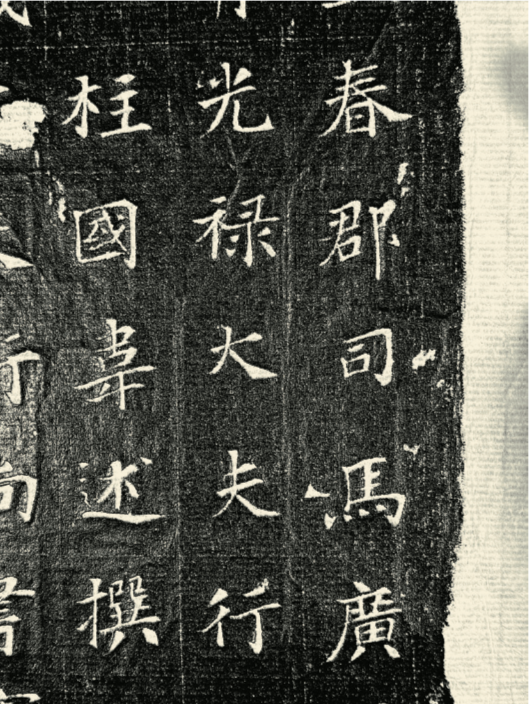 春郡司馮廣
光禄大夫行
柱國韋述撰